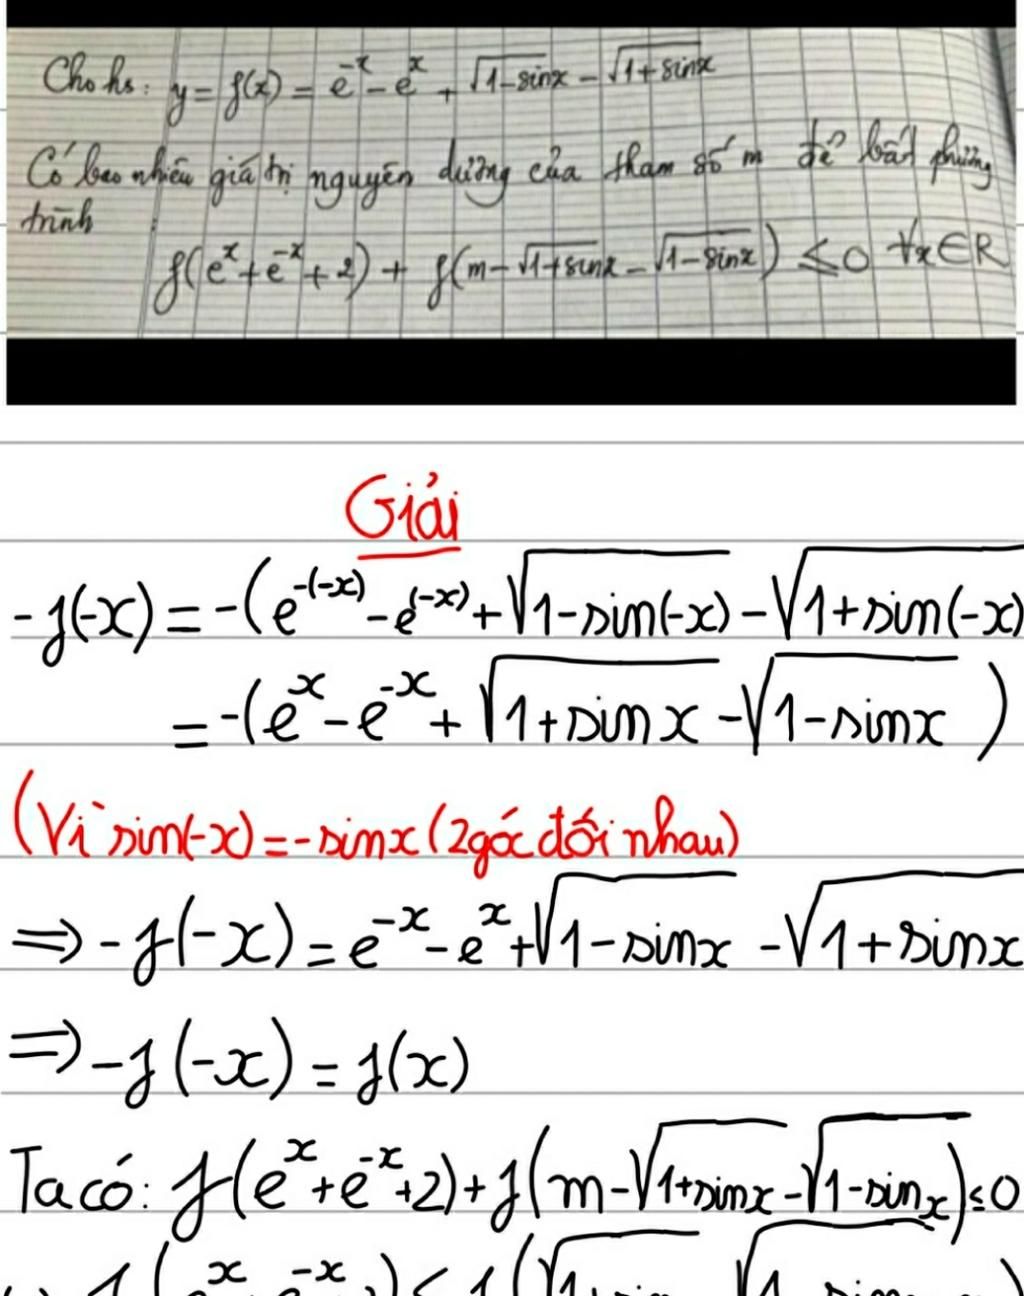 Cho hs: y = f(x) = e^{-x} - e^{x} + √(1-sinx) - √(1+sinx)
Có bao nhiêu giá trị nguyên dương của tham số m để bất phương
trình
f(e^x + e^{-x} + 2) + f(m - √(1+sinx) - √(1-sinx)) ≤ 0 ∀x∈R
Giải
-f(-x) = -(e^{-(-x)} - e^{(-x)} + √(1-sin(-x)) - √(1+sin(-x))
= -(e^x - e^{-x} + √(1+sinx) - √(1-sinx))
(Vì sin(-x) = -sinx (2 góc đối nhau)
⇒ -f(-x) = e^{-x} - e^x + √(1-sinx) - √(1+sinx)
⇒ -f(-x) = f(x)
Ta có: f(e^x + e^{-x} + 2) + f(m - √(1+sinx) - √(1-sinx)) ≤ 0